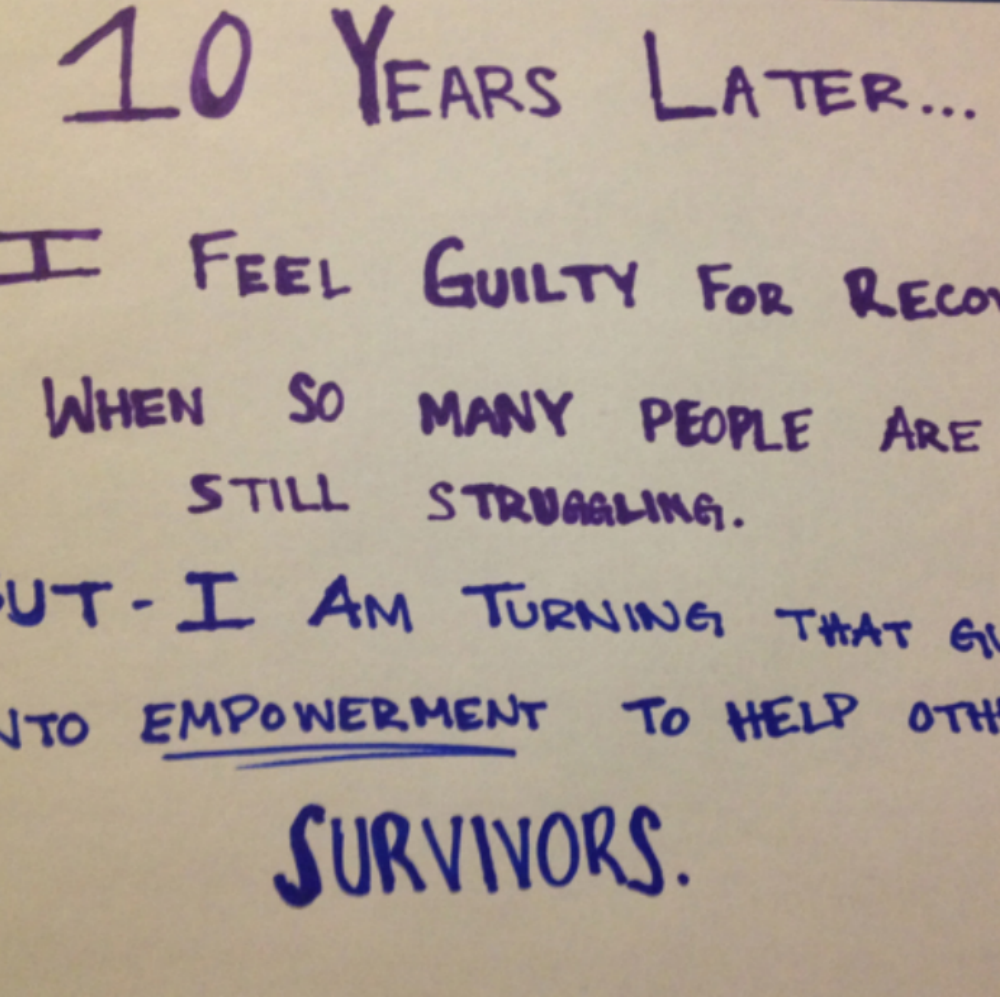 10 YEARS LATER...
I FEEL GUILTY FOR RECOV
WHEN SO MANY PEOPLE ARE
STILL STRUGGLING.
UT - I AM TURNING THAT GU
NTO EMPOWERMENT TO HELP OTH
SURVIVORS.